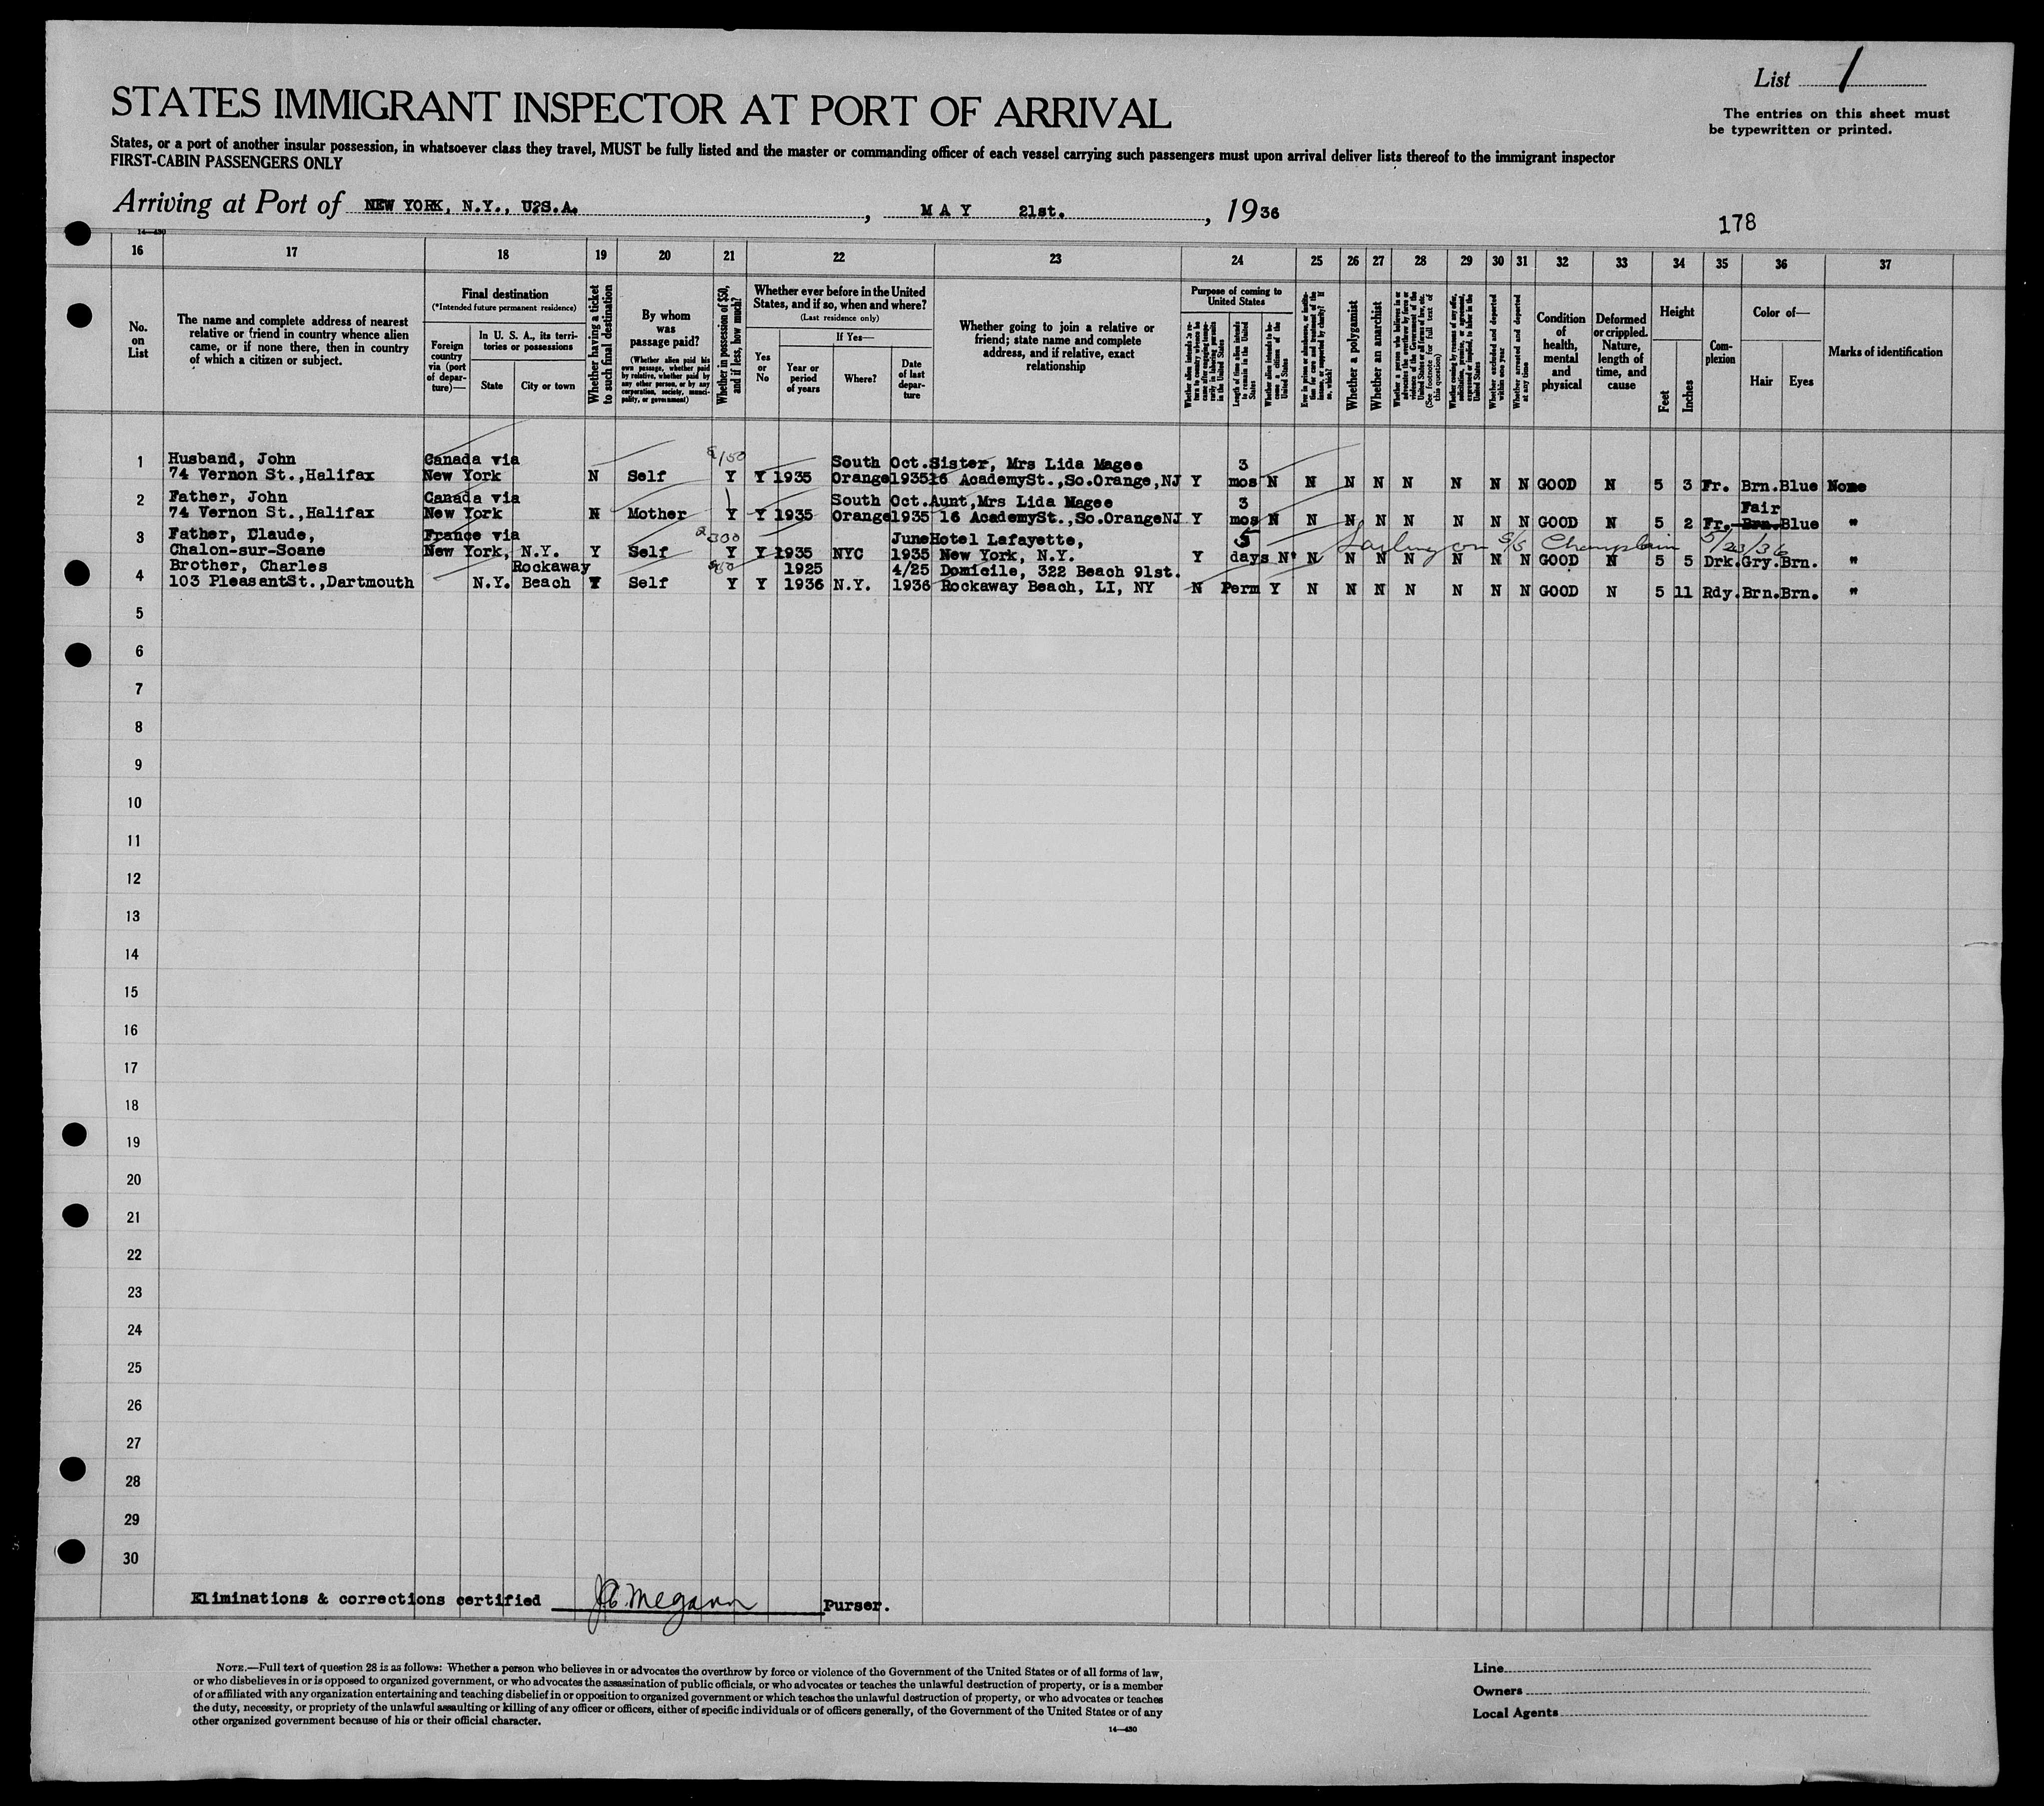 List 1
STATES IMMIGRANT INSPECTOR AT PORT OF ARRIVAL
The entries on this sheet must
be typewritten or printed.
States, or a port of another insular possession, in whatsoever class they travel, MUST be fully listed and the master or commanding officer of each vessel carrying such passengers must upon arrival deliver lists thereof to the immigrant inspector
FIRST-CABIN PASSENGERS ONLY
Arriving at Port of NEW YORK, N.Y., U.S.A., MAY 21st., 1936
178
14—430
16 17 18 19 20 21 22 23 24 25 26 27 28 29 30 31 32 33 34 35 36 37
No. on List
The name and complete address of nearest
relative or friend in country whence alien
came, or if none there, then in country
of which a citizen or subject.
Final destination
(*Intended future permanent residence)
Foreign country via (port of departure)—
In U. S. A., its territories or possessions
State
City or town
Whether having a ticket to such final destination
By whom was passage paid?
(Whether alien paid his own passage, whether paid by relative, whether paid by any other person, or by any corporation, society, municipality, or government)
Whether in possession of $50, and if less, how much?
Whether ever before in the United
States, and if so, when and where?
(Last residence only)
Yes or No
If Yes—
Year or period of years
Where?
Date of last departure
Whether going to join a relative or
friend; state name and complete
address, and if relative, exact
relationship
Purpose of coming to United States
Length of time alien intends to remain in the United States
Whether alien intends to become a citizen of the United States
Whether a polygamist
Whether an anarchist
(See footnote for full text of this question)
Whether excluded and deported within one year
Whether arrested and deported at any time
Condition of health, mental and physical
Deformed or crippled. Nature, length of time, and cause
Height
Feet
Inches
Complexion
Color of—
Hair
Eyes
Marks of identification
1 Husband, John Canada via South Oct. Sister, Mrs Lida Magee 3
74 Vernon St.,Halifax New York N Self Y Y 1935 Orange 1935 16 AcademySt.,So.Orange,NJ Y mos N N N N N N N N GOOD N 5 3 Fr. Brn. Blue None
2 Father, John Canada via South Oct. Aunt,Mrs Lida Magee 3 Fair
74 Vernon St.,Halifax New York N Mother Y Y 1935 Orange 1935 16 AcademySt.,So.OrangeNJ Y mos N N N N N N N N GOOD N 5 2 Fr. Brn. Blue "
3 Father, Claude, France via 300 June Hotel Lafayette, 5 Sailing on S/S Champlain 5/23/36
Chalon-sur-Soane New York, N.Y. Y Self Y Y 1935 NYC 1935 New York, N.Y. Y days N N N N N N N N GOOD N 5 5 Drk. Gry. Brn. "
4 Brother, Charles Rockaway 1925 4/25 Domicile, 322 Beach 91st.
103 PleasantSt.,Dartmouth N.Y. Beach Y Self Y Y 1936 N.Y. 1936 Rockaway Beach, LI, NY N Perm Y N N N N N N N GOOD N 5 11 Rdy. Brn. Brn. "
5
6
7
8
9
10
11
12
13
14
15
16
17
18
19
20
21
22
23
24
25
26
27
28
29
30
Eliminations & corrections certified Purser.
NOTE.—Full text of question 28 is as follows: Whether a person who believes in or advocates the overthrow by force or violence of the Government of the United States or of all forms of law,
or who disbelieves in or is opposed to organized government, or who advocates the assassination of public officials, or who advocates or teaches the unlawful destruction of property, or is a member
of or affiliated with any organization entertaining and teaching disbelief in or opposition to organized government or which teaches the unlawful destruction of property, or who advocates or teaches
the duty, necessity, or propriety of the unlawful assaulting or killing of any officer or officers, either of specific individuals or of officers generally, of the Government of the United States or of any
other organized government because of his or their official character.
14—430
Line
Owners
Local Agents